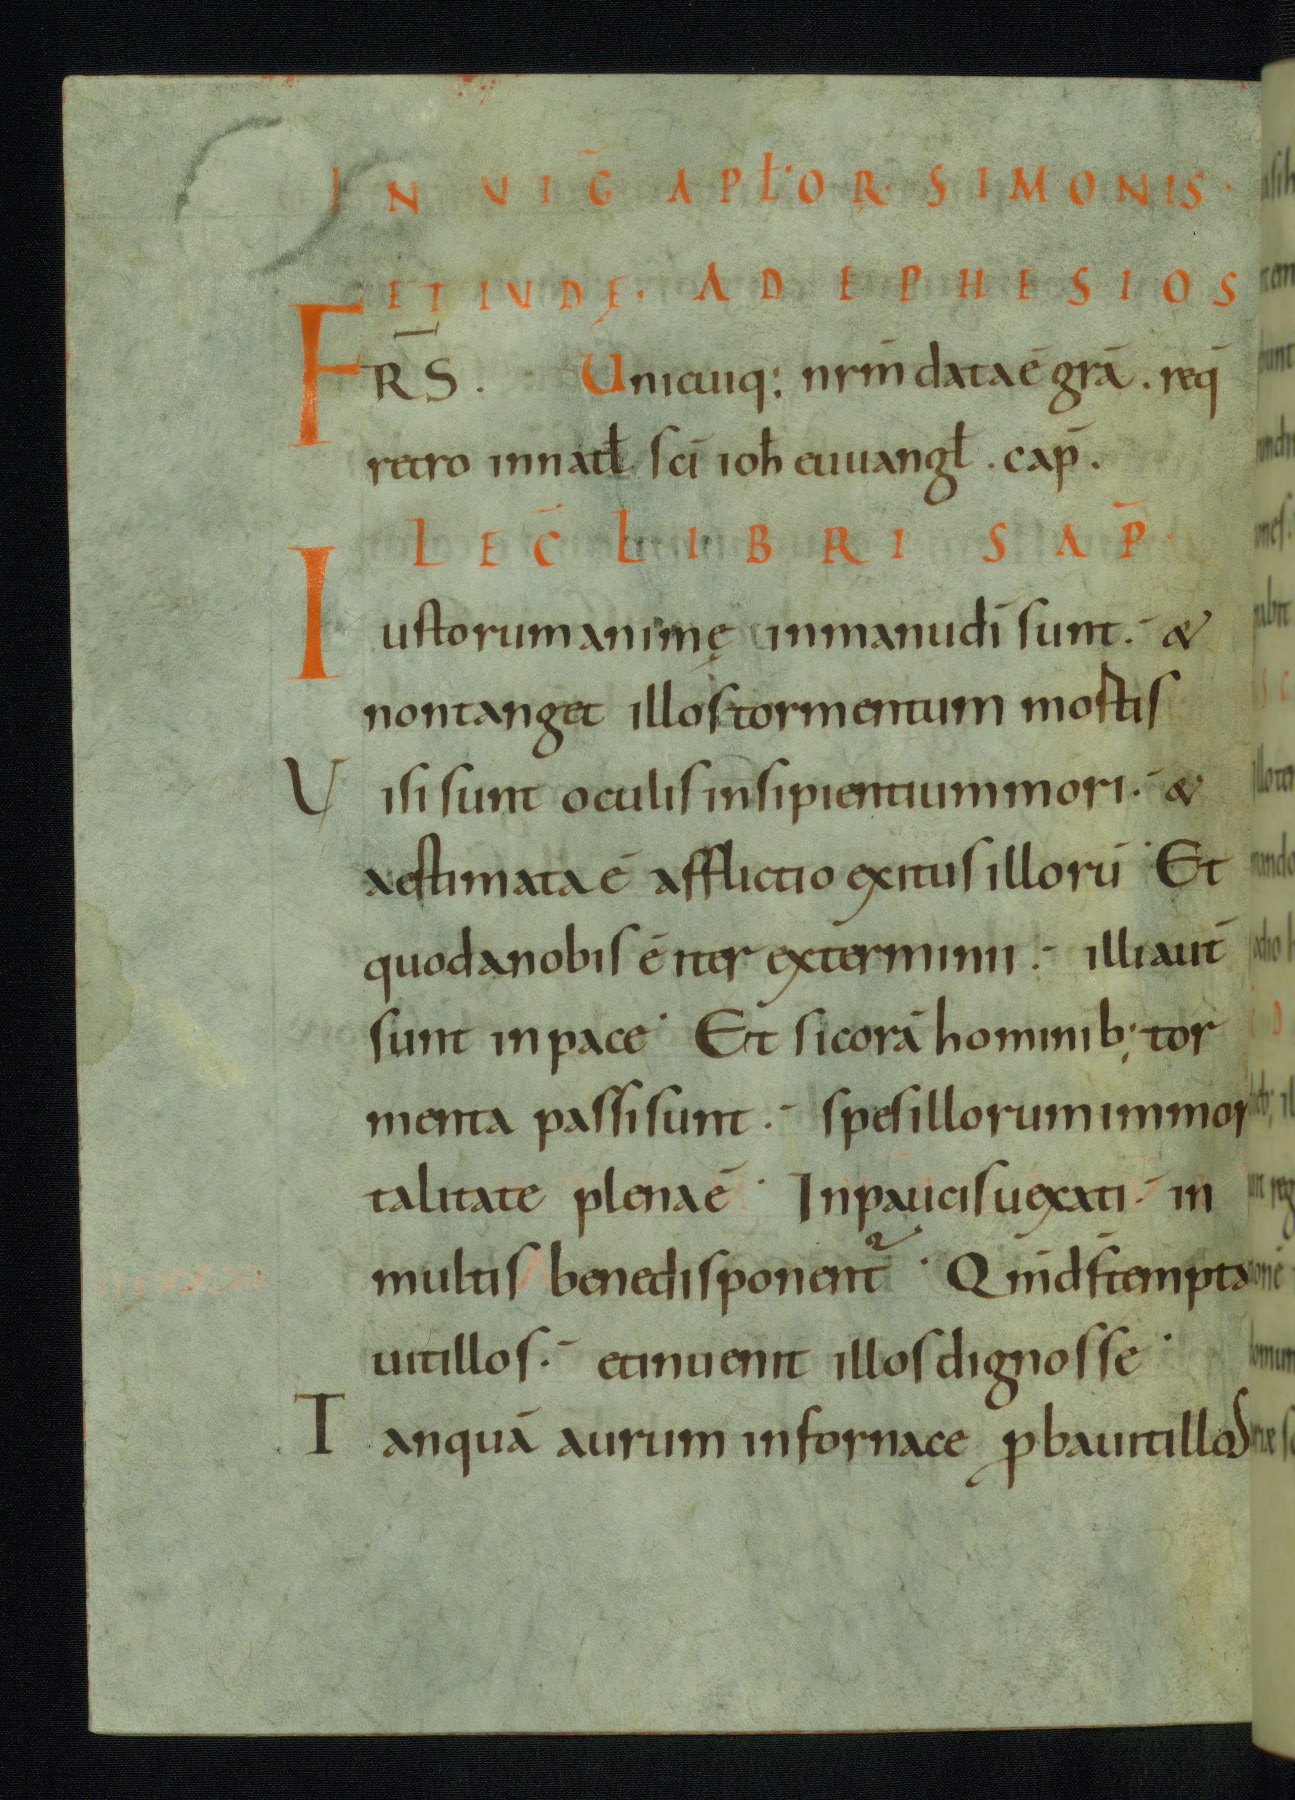 IN VIḠ APƚOR SIMONIS·
ET IVDĘ· AD EPHESIOS
FR̄S. Unicuiq; nrm̄ data ē grā. req̄
retro in natł sc̄i ioħ euuangł. cap̄.
LEC̄ LIBRI SAP̄·
Iustorum animę in manu dī sunt· &
non tanget illos tormentum mortis
Visi sunt oculis insipientium mori· &
aestimata ē afflictio exitus illorū· Et
quod a nobis ē iter exterminii· illi aut̄
sunt in pace· Et si corā hominib; tor
menta passi sunt· spes illorum immor
talitate plena ē· In paucis uexati· in
multis bene disponent᷑· Qm̄ ds̄ tempta
uit illos· et inuenit illos dignos se·
Tanquā aurum in fornace ꝓbauit illos